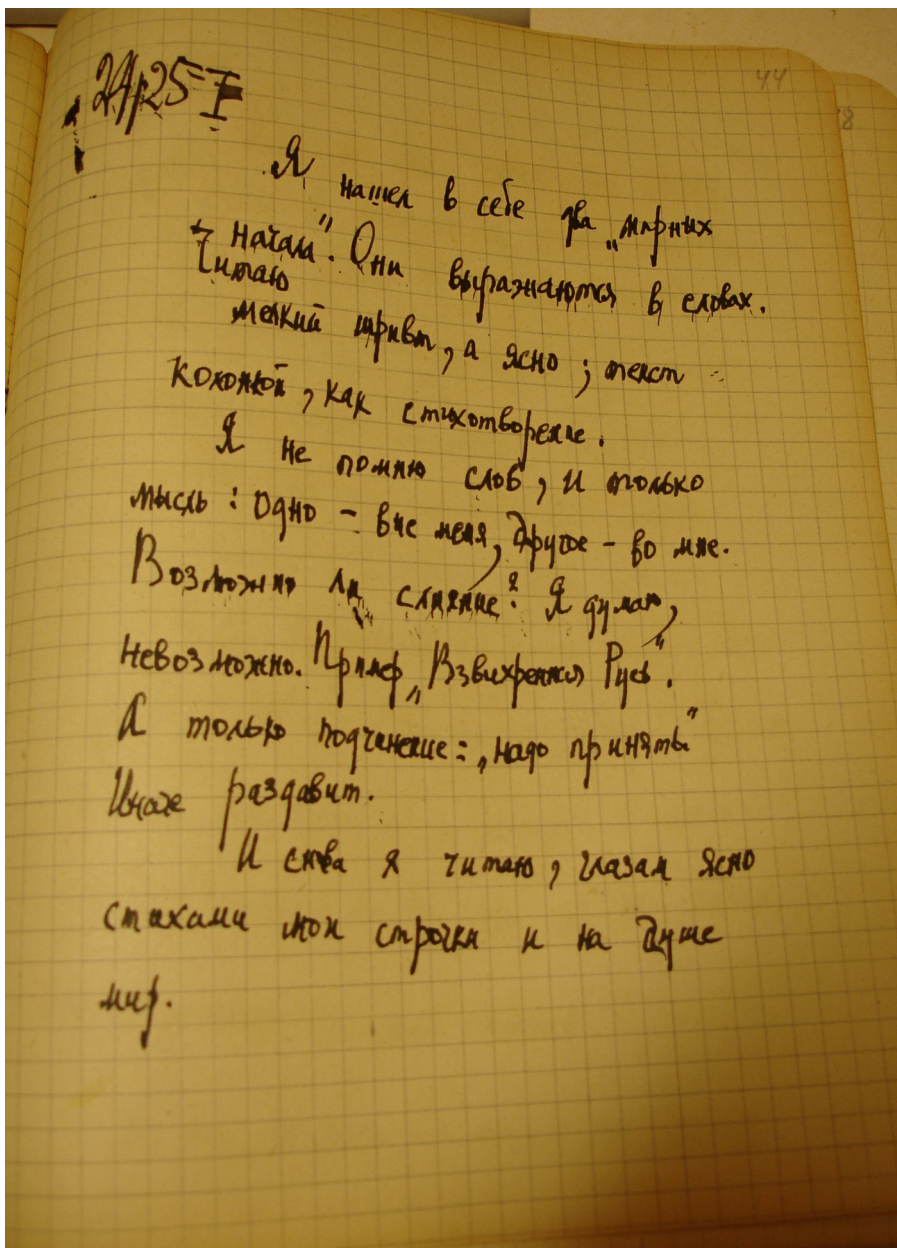 44
24/25–I
Я нашел в себе два „мирных
начала“. Они выражаются в словах.
Читаю
мелкий шрифт, а ясно; текст
, как стихотворение.
Я не помню слов, и только
мысль: одно – вне меня, другое – во мне.
Возможно ли слияние? Я думаю,
невозможно. Пример „Взвихренная Русь“.
А только подчинение: „надо принять“
Иначе раздавит.
И снова я читаю, глазам ясно
стихами мои строчки и на душе
мир.